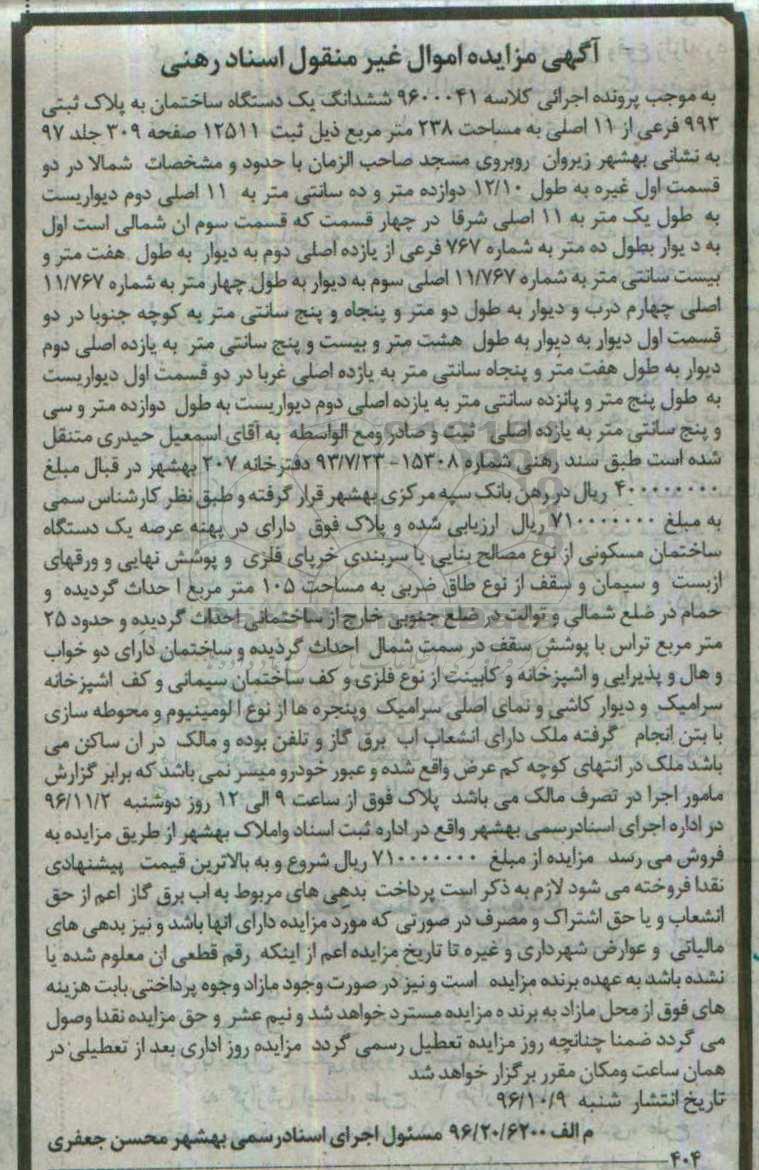 آگهی مزایده اموال غیر منقول اسناد رهنی
به موجب پرونده اجرائی کلاسه ۹۶۰۰۰۴۱ ششدانگ یک دستگاه ساختمان به پلاک ثبتی
۹۹۳ فرعی از ۱۱ اصلی به مساحت ۲۳۸ متر مربع ذیل ثبت ۱۲۵۱۱ صفحه ۳۰۹ جلد ۹۷
به نشانی بهشهر زیروان روبروی مسجد صاحب الزمان با حدود و مشخصات شمالا در دو
قسمت اول غیره به طول ۱۲/۱۰ دوازده متر و ده سانتی متر به ۱۱ اصلی دوم دیواریست
به طول یک متر به ۱۱ اصلی شرقا در چهار قسمت که قسمت سوم ان شمالی است اول
به د یوار بطول ده متر به شماره ۷۶۷ فرعی از یازده اصلی دوم به دیوار به طول هفت متر و
بیست سانتی متر به شماره ۱۱/۷۶۷ اصلی سوم به دیوار به طول چهار متر به شماره ۱۱/۷۶۷
اصلی چهارم درب و دیوار به طول دو متر و پنجاه و پنج سانتی متر به کوچه جنوبا در دو
قسمت اول دیوار به دیوار به طول هشت متر و بیست و پنج سانتی متر به یازده اصلی دوم
دیوار به طول هفت متر و پنجاه سانتی متر به یازده اصلی غربا در دو قسمت اول دیواریست
به طول پنج متر و پانزده سانتی متر به یازده اصلی دوم دیواریست به طول دوازده متر و سی
و پنج سانتی متر به یازده اصلی ثبت و صادر ومع الواسطه به آقای اسمعیل حیدری متنقل
شده است طبق سند رهنی شماره ۱۵۳۰۸-۹۳/۷/۲۳ دفترخانه ۲۰۷ بهشهر در قبال مبلغ
۴۰۰۰۰۰۰۰۰ ریال در رهن بانک سپه مرکزی بهشهر قرار گرفته و طبق نظر کارشناس سمی
به مبلغ ۷۱۰۰۰۰۰۰۰ ریال ارزیابی شده و پلاک فوق دارای در پهنه عرصه یک دستگاه
ساختمان مسکونی از نوع مصالح بنایی با سربندی خرپای فلزی و پوشش نهایی و ورقهای
ازبست و سیمان و سقف از نوع طاق ضربی به مساحت ۱۰۵ متر مربع ا حداث گردیده و
حمام در ضلع شمالی و توالت در ضلع جنوبی خارج از ساختمانی احداث گردیده و حدود ۲۵
متر مربع تراس با پوشش سقف در سمت شمال احداث گردیده و ساختمان دارای دو خواب
و هال و پذیرایی و اشپزخانه و کابینت از نوع فلزی و کف ساختمان سیمانی و کف اشپزخانه
سرامیک و دیوار کاشی و نمای اصلی سرامیک وپنجره ها از نوع ا لومینیوم و محوطه سازی
با بتن انجام گرفته ملک دارای انشعاب اب برق گاز و تلفن بوده و مالک در ان ساکن می
باشد ملک در انتهای کوچه کم عرض واقع شده و عبور خودرو میسر نمی باشد که برابر گزارش
مامور اجرا در تصرف مالک می باشد پلاک فوق از ساعت ۹ الی ۱۲ روز دوشنبه ۹۶/۱۱/۲
در اداره اجرای اسنادرسمی بهشهر واقع در اداره ثبت اسناد واملاک بهشهر از طریق مزایده به
فروش می رسد مزایده از مبلغ ۷۱۰۰۰۰۰۰۰ ریال شروع و به بالاترین قیمت پیشنهادی
نقدا فروخته می شود لازم به ذکر است پرداخت بدهی های مربوط به اب برق گاز اعم از حق
انشعاب و یا حق اشتراک و مصرف در صورتی که مورد مزایده دارای انها باشد و نیز بدهی های
مالیاتی و عوارض شهرداری و غیره تا تاریخ مزایده اعم از اینکه رقم قطعی ان معلوم شده یا
نشده باشد به عهده برنده مزایده است و نیز در صورت وجود مازاد وجوه پرداختی بابت هزینه
های فوق از محل مازاد به برند ه مزایده مسترد خواهد شد و نیم عشر و حق مزایده نقدا وصول
می گردد ضمنا چنانچه روز مزایده تعطیل رسمی گردد مزایده روز اداری بعد از تعطیلی در
همان ساعت ومکان مقرر برگزار خواهد شد
تاریخ انتشار شنبه ۹۶/۱۰/۹
م الف ۹۶/۲۰/۶۲۰۰ مسئول اجرای اسنادرسمی بهشهر محسن جعفری
۴۰۴